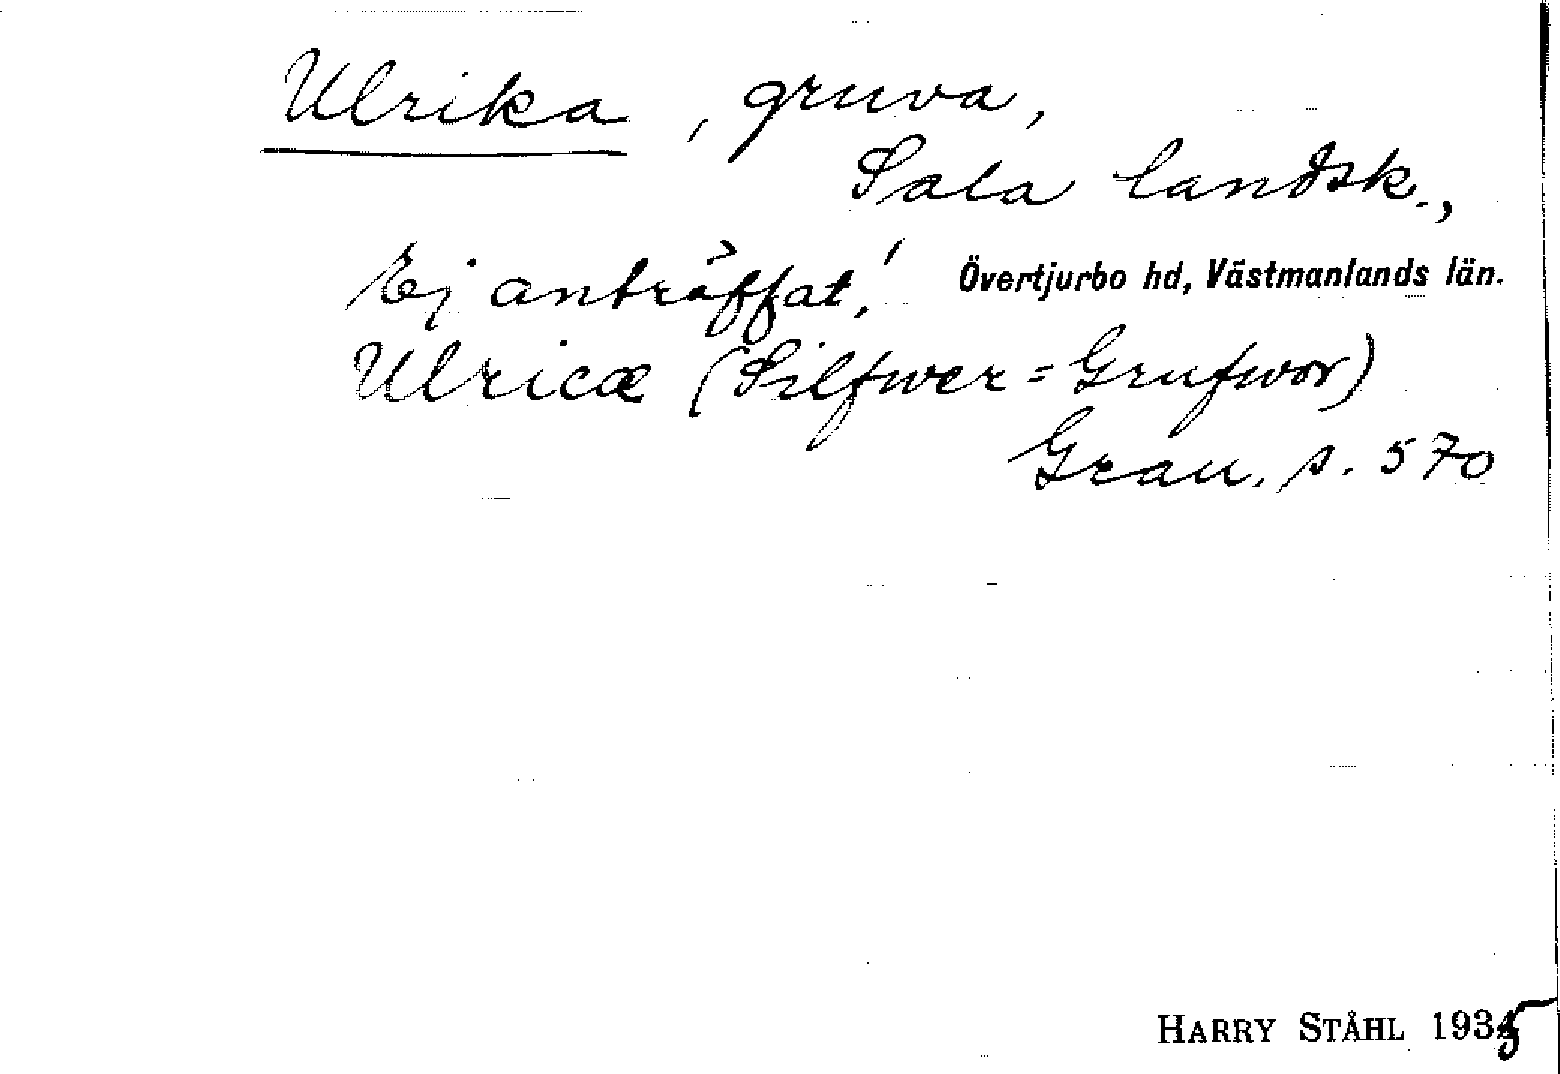 Ulrika, gruva,
Sala landsk.,
Ej anträffat! Övertjurbo hd, Västmanlands län.
Ulricæ (Silfwer=Grufwor)
Grau. s. 570
HARRY STÅHL 1935